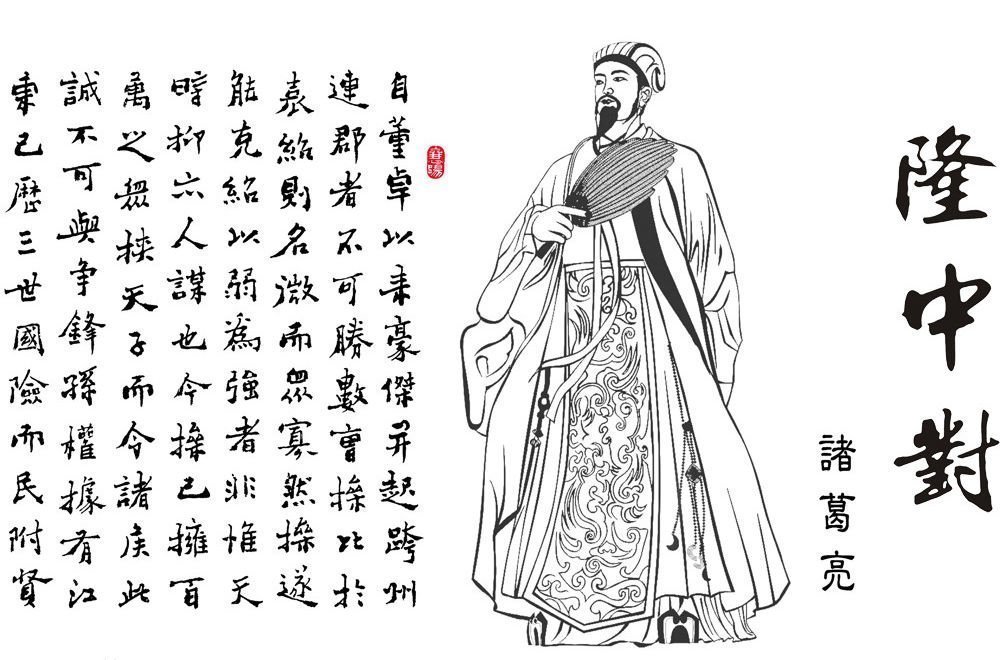 隆中對
諸葛亮
襄陽
自董卓以來豪傑并起跨州
連郡者不可勝數曹操比於
袁紹則名微而眾寡然操遂
能克紹以弱為強者非惟天
時抑亦人謀也今操已擁百
萬之眾挾天子而令諸侯此
誠不可與爭鋒孫權據有江
東已歷三世國險而民附賢